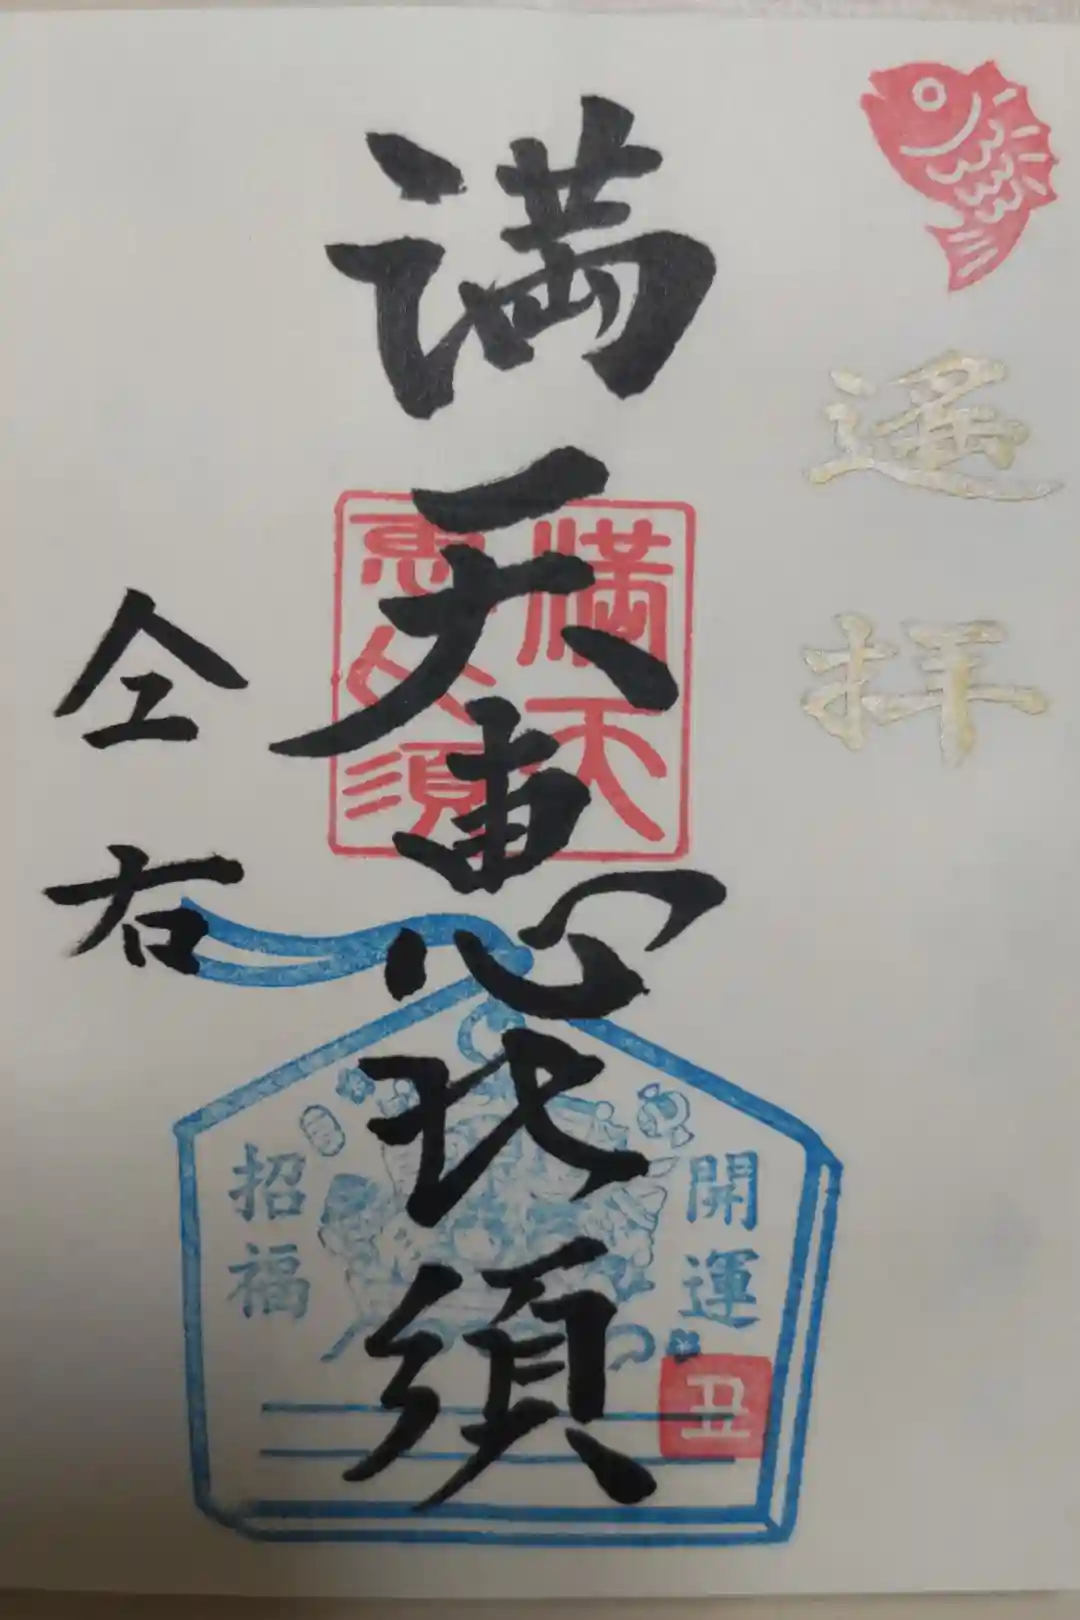 遥拝
満天恵比須
満天
恵比須
開運
招福
丑
仝右